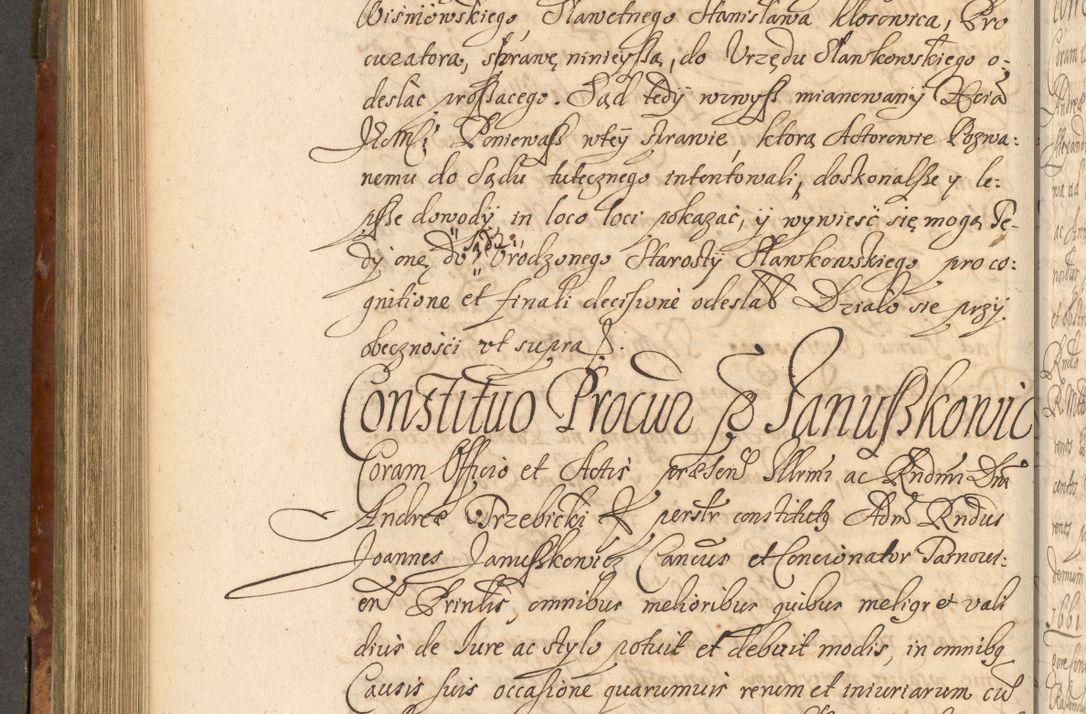 Wiśniowskiego Sławetnego Stanisława kłosowica, Pro
curatora, sprawę ninieyszą, do Urzędu Sławkowskiego o-
desłac proszącego. Sąd tedy wzwysz mianowany JKcia
JEmSi Poniewasz wtey sprawie, ktorą Actorowie Pozwa-
nemu do Sądu tutęcznego intentowali, doskonalsze y le-
psze dowody in loco loci pokazać, y wywieść się mogą, Te-
dy onę do Sądu Urodzonego Starosty Sławkowskiego pro co-
gnitione et finali decisione odesłał Działo się przy
obecznosci vt supra
Constituo Procur Janusskowic
Coram Officio et Actis præsen Illrmi ac Rndmi Dni
Andreæ Trzebicki perslr constitutq Admd Rndus
Joannes Janusskowicz Cancus et Concionator Tarnovi-
en Prinlis, omnibus melioribus quibus meligr et vali
dius de Iure ac stylo potuit et debuit modis, in omnibq
Causis suis occasione quarumuis rerum et iniuriarum cu